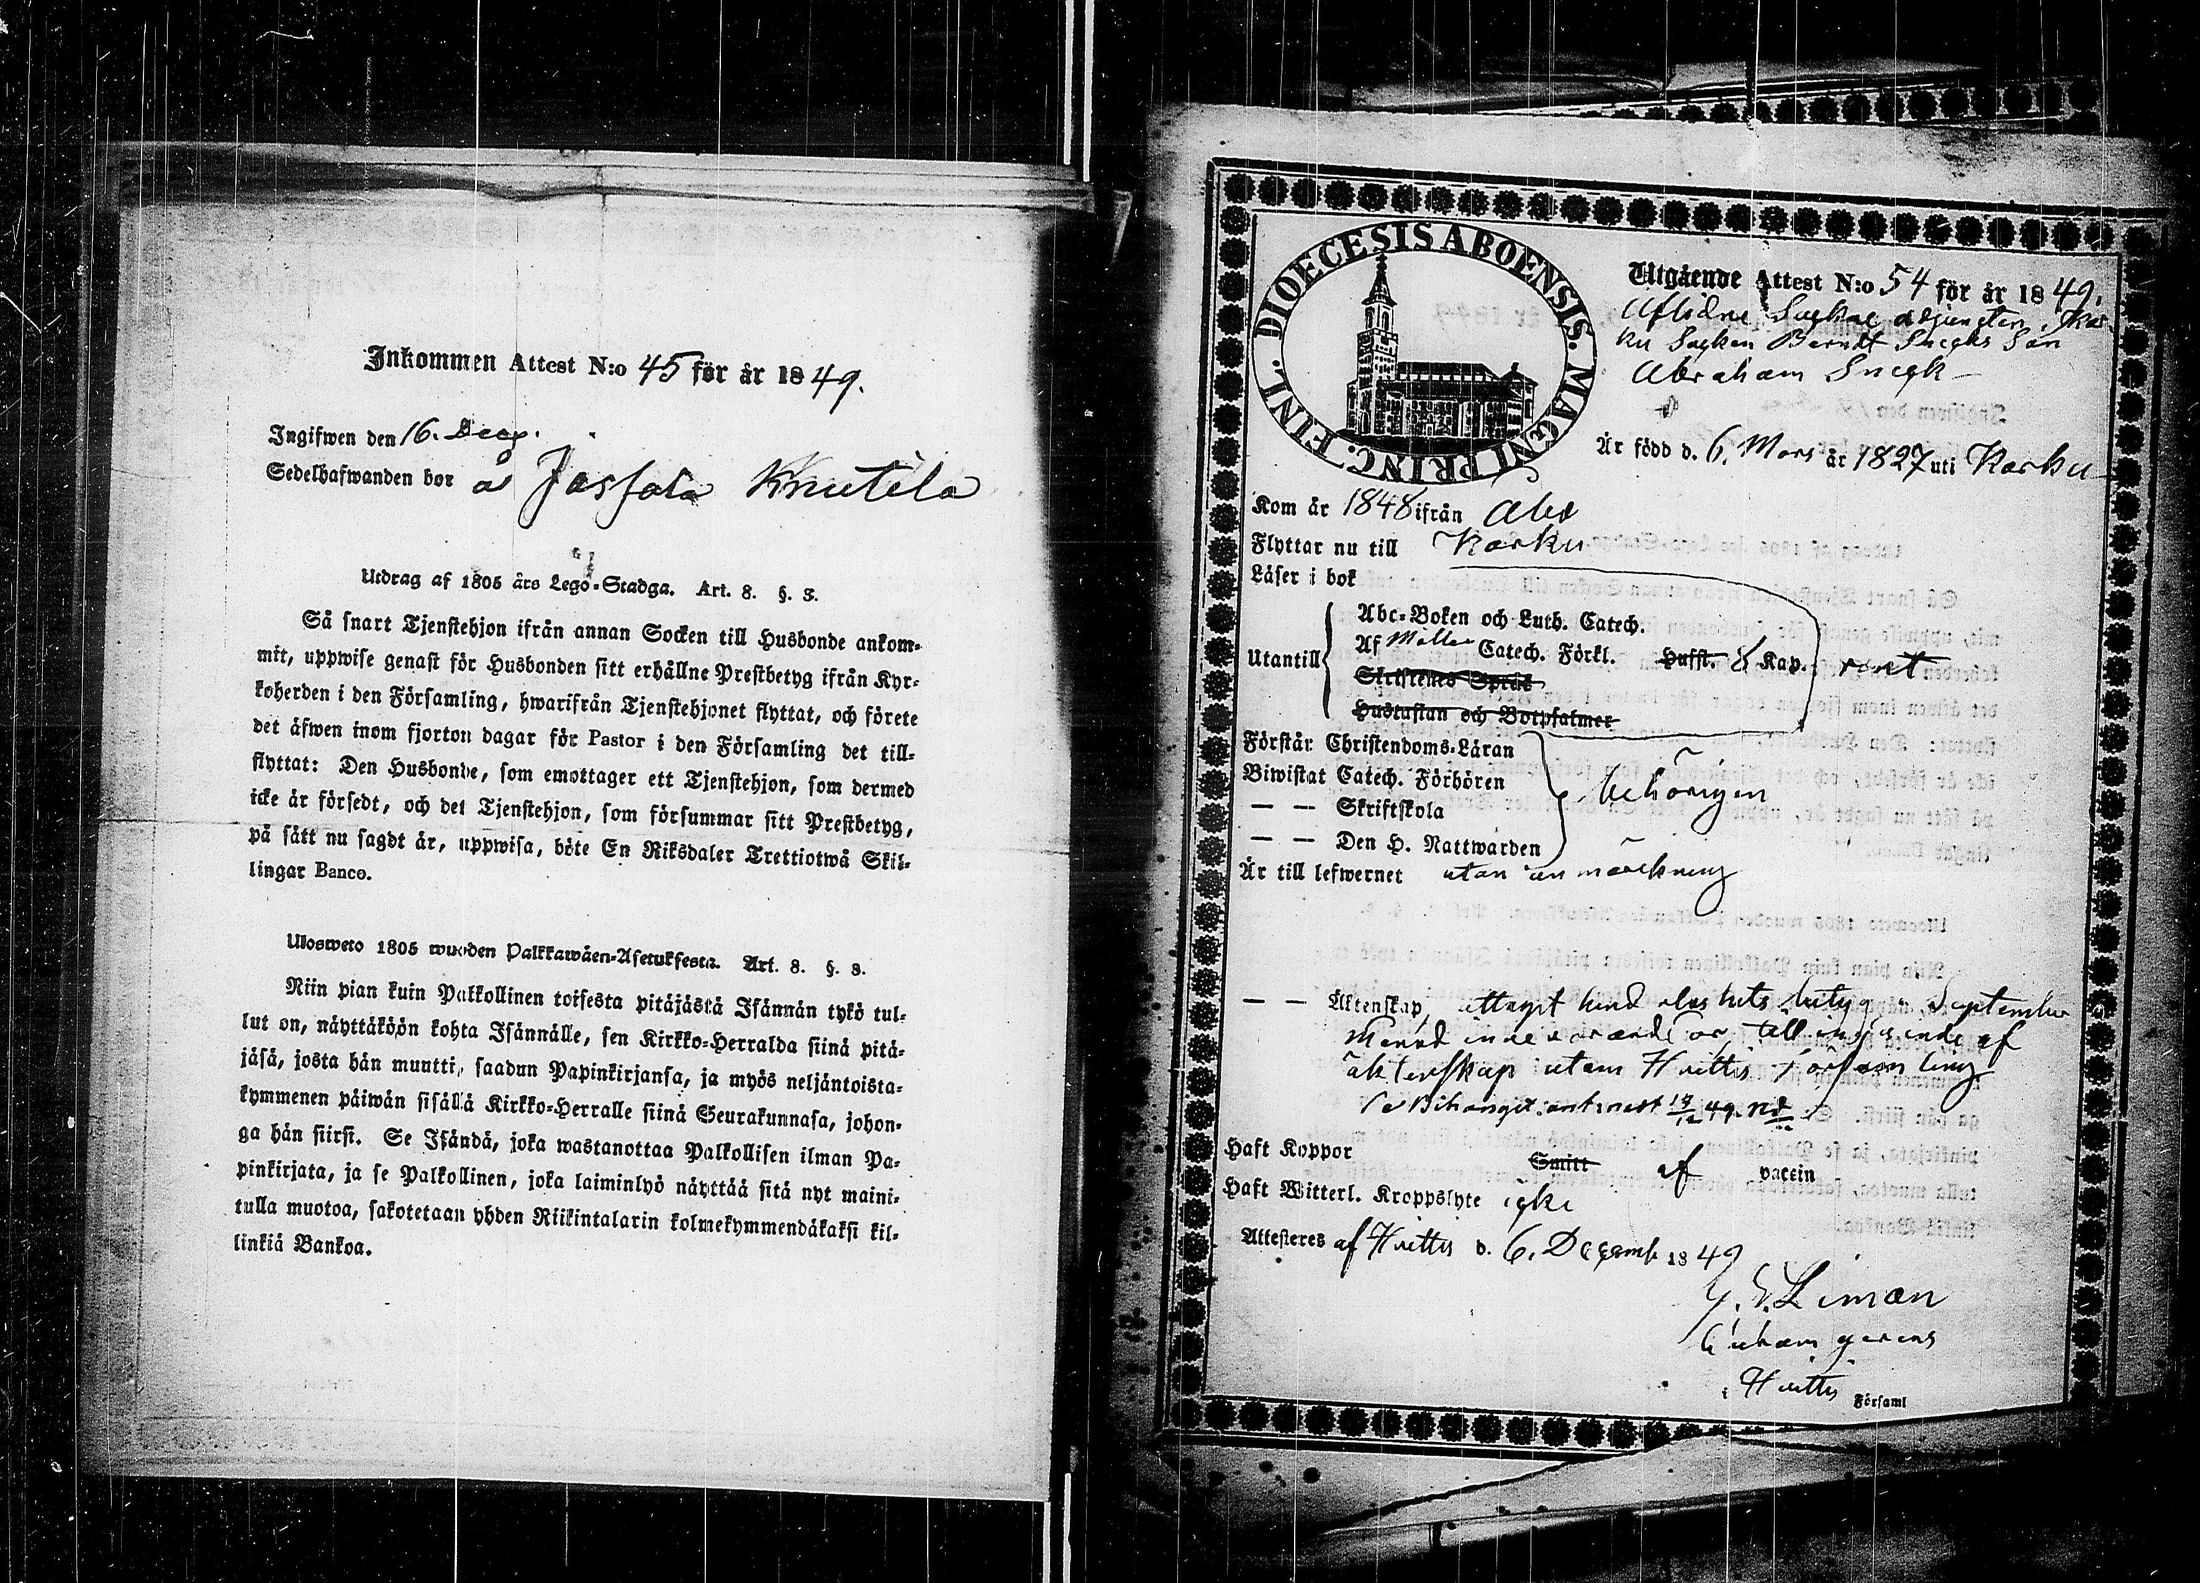 Inkommen Attest N:o 45 för år 1849.
Ingifwen den 16. Decr.
Sedelhafwanden bor å Jassala Knutila
Utdrag af 1805 års Lego-Stadga. Art. 8. §. 3.
Så snart Tjenstehjon ifrån annan Socken till Husbonde ankom-
mit, uppwise genast för Husbonden sitt erhållne Prestbetyg ifrån Kyr-
koherden i den Församling, hwarifrån Tjenstehjonet flyttat, och förete
det äfwen inom fjorton dagar för Pastor i den Församling det till-
flyttat: Den Husbonde, som emottager ett Tjenstehjon, som dermed
icke är försedt, och det Tjenstehjon, som försummar sitt Prestbetyg,
på sätt nu sagdt är, uppwisa, böte En Riksdaler Trettiotwå Skil-
lingar Banco.
Ulosweto 1805 wuoden Palkkawäen-Asetuksesta. Art. 8. §. 3.
Niin pian kuin Palkollinen toisesta pitäjästä Isännän tykö tul-
lut on, näyttäköön kohta Isännälle, sen Kirkko-Herralda siinä pitä-
jäsä, josta hän muutti, saadun Papinkirjansa, ja myös neljäntoista-
kymmenen päiwän sisällä Kirkko-Herralle siinä Seurakunnasa, johon-
ga hän siirsi. Se Isändä, joka wastanottaa Palkollisen ilman Pa-
pinkirjata, ja se Palkollinen, joka laiminlyö näyttää sitä nyt maini-
tulla muotoa, sakotetaan yhden Riikintalarin kolmekymmendäkaksi kil-
linkiä Bankoa.
DIOECESIS ABOENSIS. MAGNI PRINC. FINL.
Utgående Attest N:o 54 för år 1849.
Aflidne Sockne adjuncten i Kar
ku Socken Berndt Snecks Son
Abraham Sneck
Är född d. 6. Mars år 1827 uti Karku
Kom år 1848 ifrån Åbo
Flyttar nu till Karku
Läser i bok
Utantill
Abc-Boken och Luth. Catech.
Af Möllers Catech. Förkl. Hufst. 8 Kap. rent
Skriftenes Språk
Hustaflan och Botpsalmer
Förstår Christendoms-Läran
Biwistat Catech. Förhören
— — Skriftskola
— — Den H. Nattwarden
behörigen
Är till lefwernet utan anmärckning
— — Äktenskap, uttagit September
Månad till ingående af
äktenskap utom Hvittis Församling
17/12 49.
Haft Koppor Smitt af vaccin
Haft Witterl. Kroppslyte icke
Attesteres af Hvittis d. 6. Decemb 1849
Liman
i Hvittis Församl